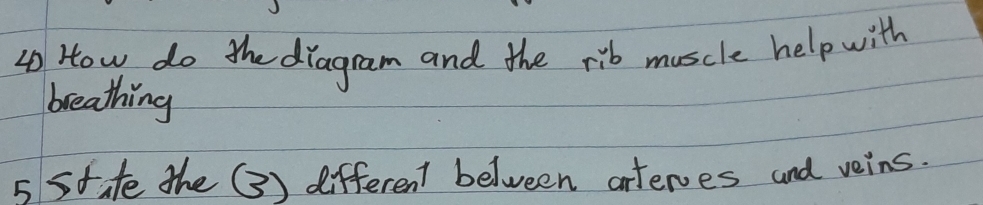 4) How do the diagram and the rib muscle help with
breathing
5 State the (3) different between arteries and veins.